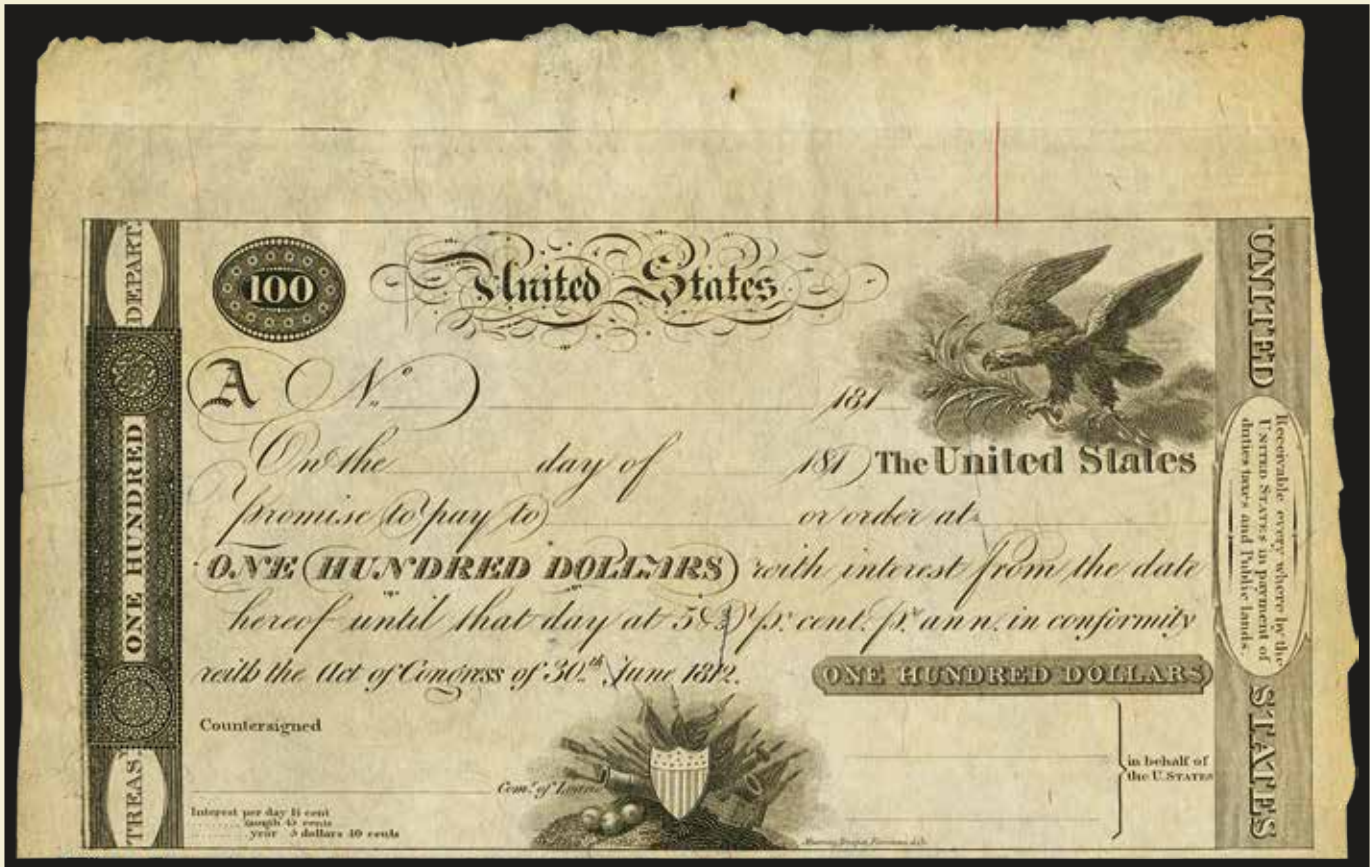 DEPART.
ONE HUNDRED
TREAS.
100
United States
A No
181
On the day of 181 The United States
promise to pay to or order at
ONE HUNDRED DOLLARS with interest from the date
hereof until that day at 5 pr. cent. pr. ann. in conformity
with the Act of Congress of 30.th June 1812.
ONE HUNDRED DOLLARS
Countersigned
Com.r of Loans
in behalf of
the U. STATES
Interest per day 1½ cent
month 45 cents
year 5 dollars 40 cents
UNITED STATES
Receivable every where by the
UNITED STATES in payment of
duties taxes and Public lands.